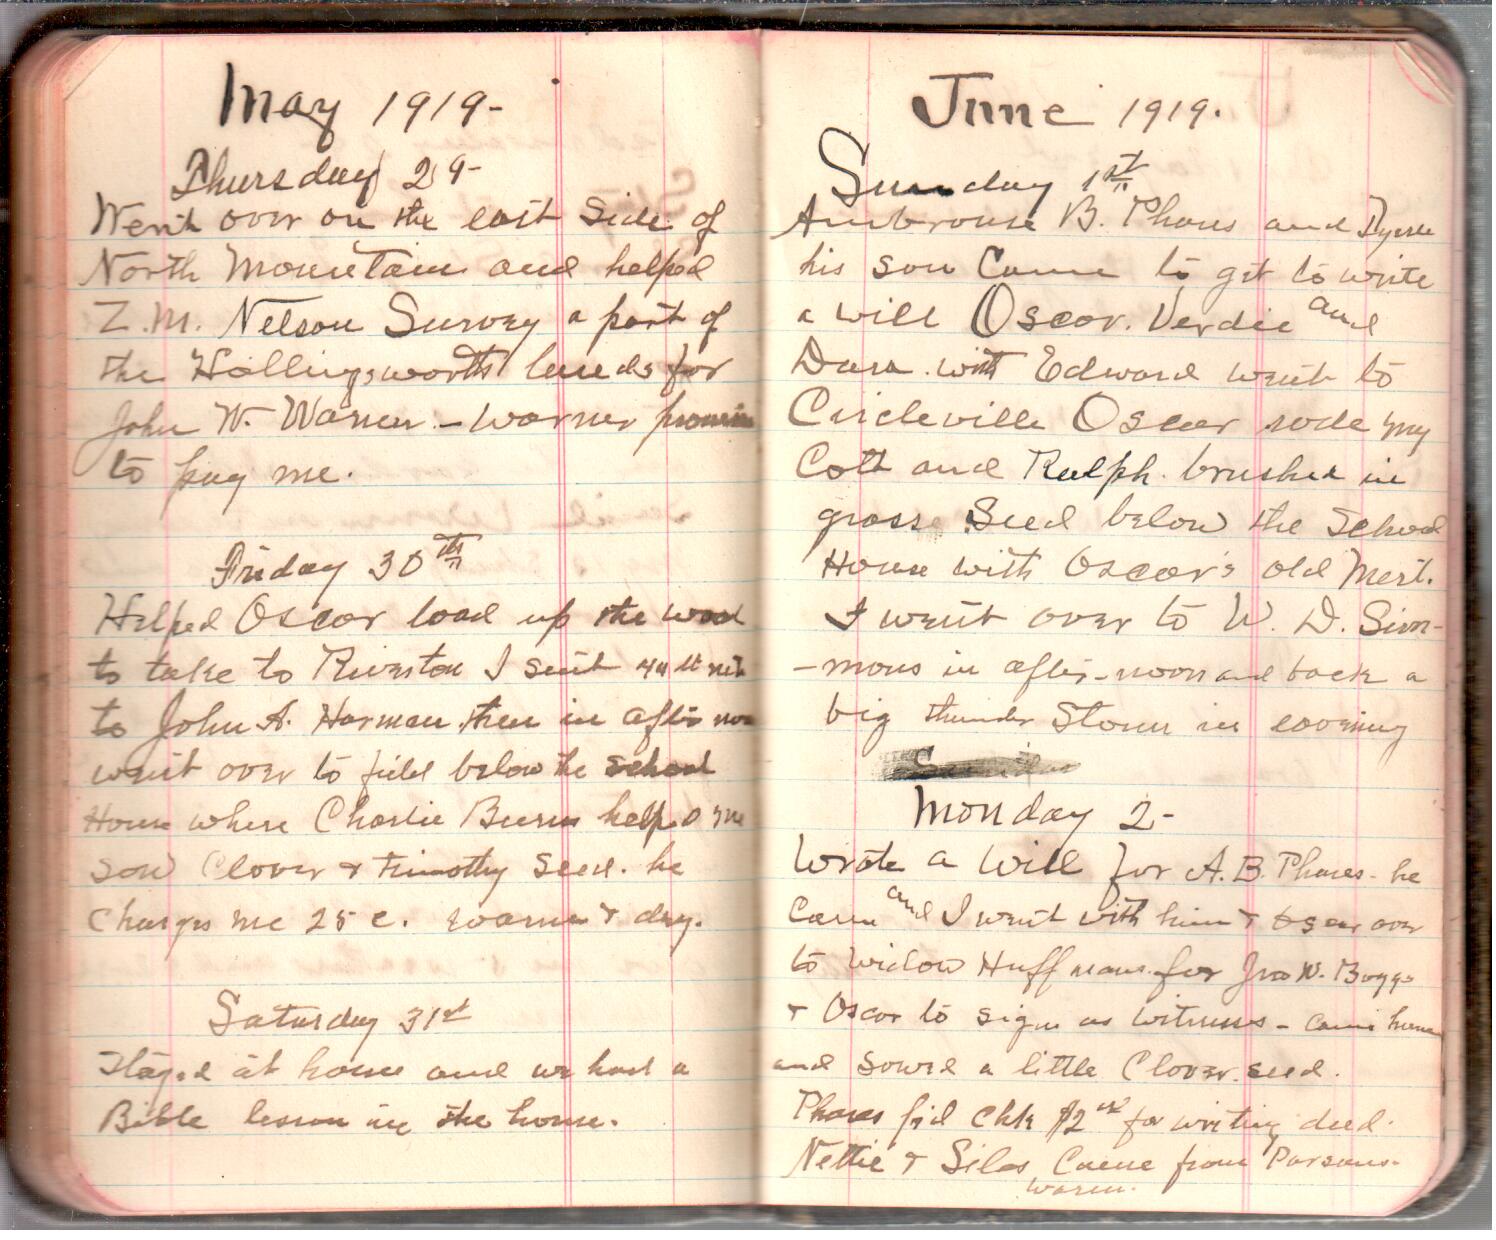 May 1919-
Thursday 29-
Went over on the east side of
North Mountain and helped
Z.M. Nelson Survey a part of
the Hollingsworth lands for
John W. Warner - Warner promise
to pay me.
Friday 30th
Helped Oscar load up the wool
to take to Riverton I sent
to John A. Harman then in after noon
went over to field below the school
House where Charlie Burns help d me
sow Clover & timothy seed. he
Charges me 25 c. warm & dry.
Saturday 31st
Stayed at home and we had a
Bible lesson in the house.
June 1919.
Sunday 1st
Ambrouse B. Phares and
his son Came to git to write
a will Oscar. Verdie and
Dara. with Edward went to
Circleville Oscar rode my
Colt and Ralph. brushed in
grasse Seed below the School
House with Oscar's old Mert.
I went over to W. D. Sim-
-mons in after-noon and back a
big thunder Storm in evening
Monday 2-
Wrote a Will for A.B. Phares - he
Came and I went with him & Oscar over
to Widow Huffmans for Jno W. Boggs
& Oscar to sign as witness - came home
and sowed a little Clover seed.
Phares p'd chk $2 for writing deed.
Nettie & Silas Came from Parsons-
warm.